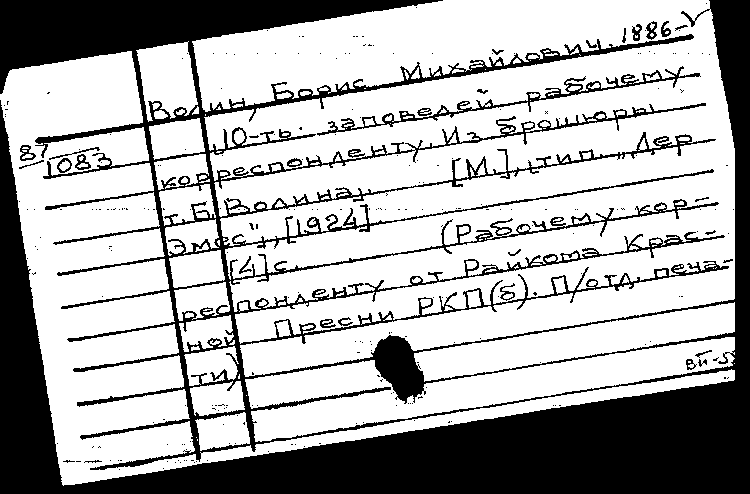 Волин, Борис Михайлович. 1886-
87
1083
„10-ть заповедей рабочему
корреспонденту. Из брошюры
т. Б. Волина„. [М.], „тип. „Дер
Эмес"„, [1924].
[4] с. (Рабочему кор-
респонденту от Райкома Крас-
ной Пресни РКП(б). П/отд. печа-
ти).